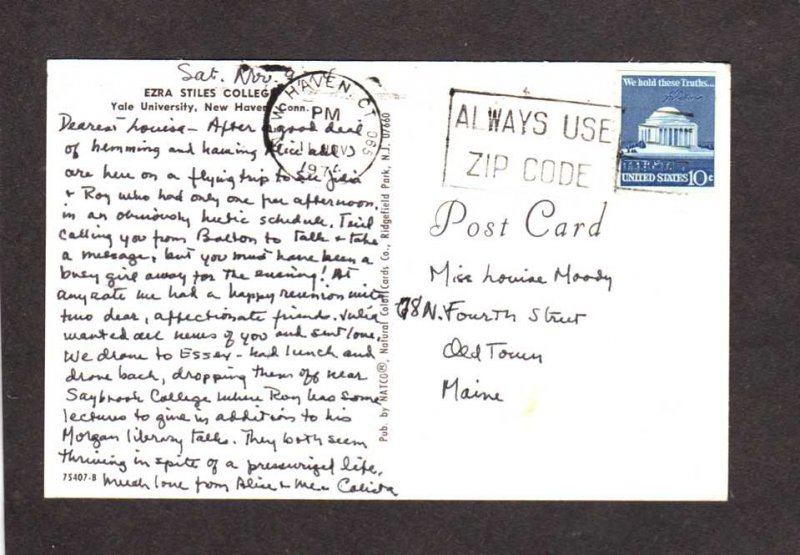 Sat. Nov. 9
EZRA STILES COLLEGE
Yale University, New Haven, Conn.
Dearest Louise - After a good deal
of hemming and hawing Alice and I
are here on a flying trip to see Julia
+ Roy who had only one free afternoon
in an obviously hectic schedule. Tried
calling you from Bolton to talk + take
a message, but you must have been a
busy girl away for the evening! At
any rate we had a happy reunion with
two dear, affectionate friends. Julia
wanted all news of you and sent love.
We drove to Essex - had lunch and
drove back, dropping them off near
Saybrook College where Roy has some
lectures to give in addition to his
Morgan library talks. They both seem
thriving in spite of a pressurized life.
Much love from Alice + me - Calista
75407-B
Pub. by NATCO®, Natural Color Cards Co., Ridgefield Park, N.J. 07660
NEW HAVEN, CT 065
PM
NOV
197
ALWAYS USE
ZIP CODE
We hold these Truths...
UNITED STATES 10c
Post Card
Miss Louise Moody
78 N. Fourth Street
Old Town
Maine